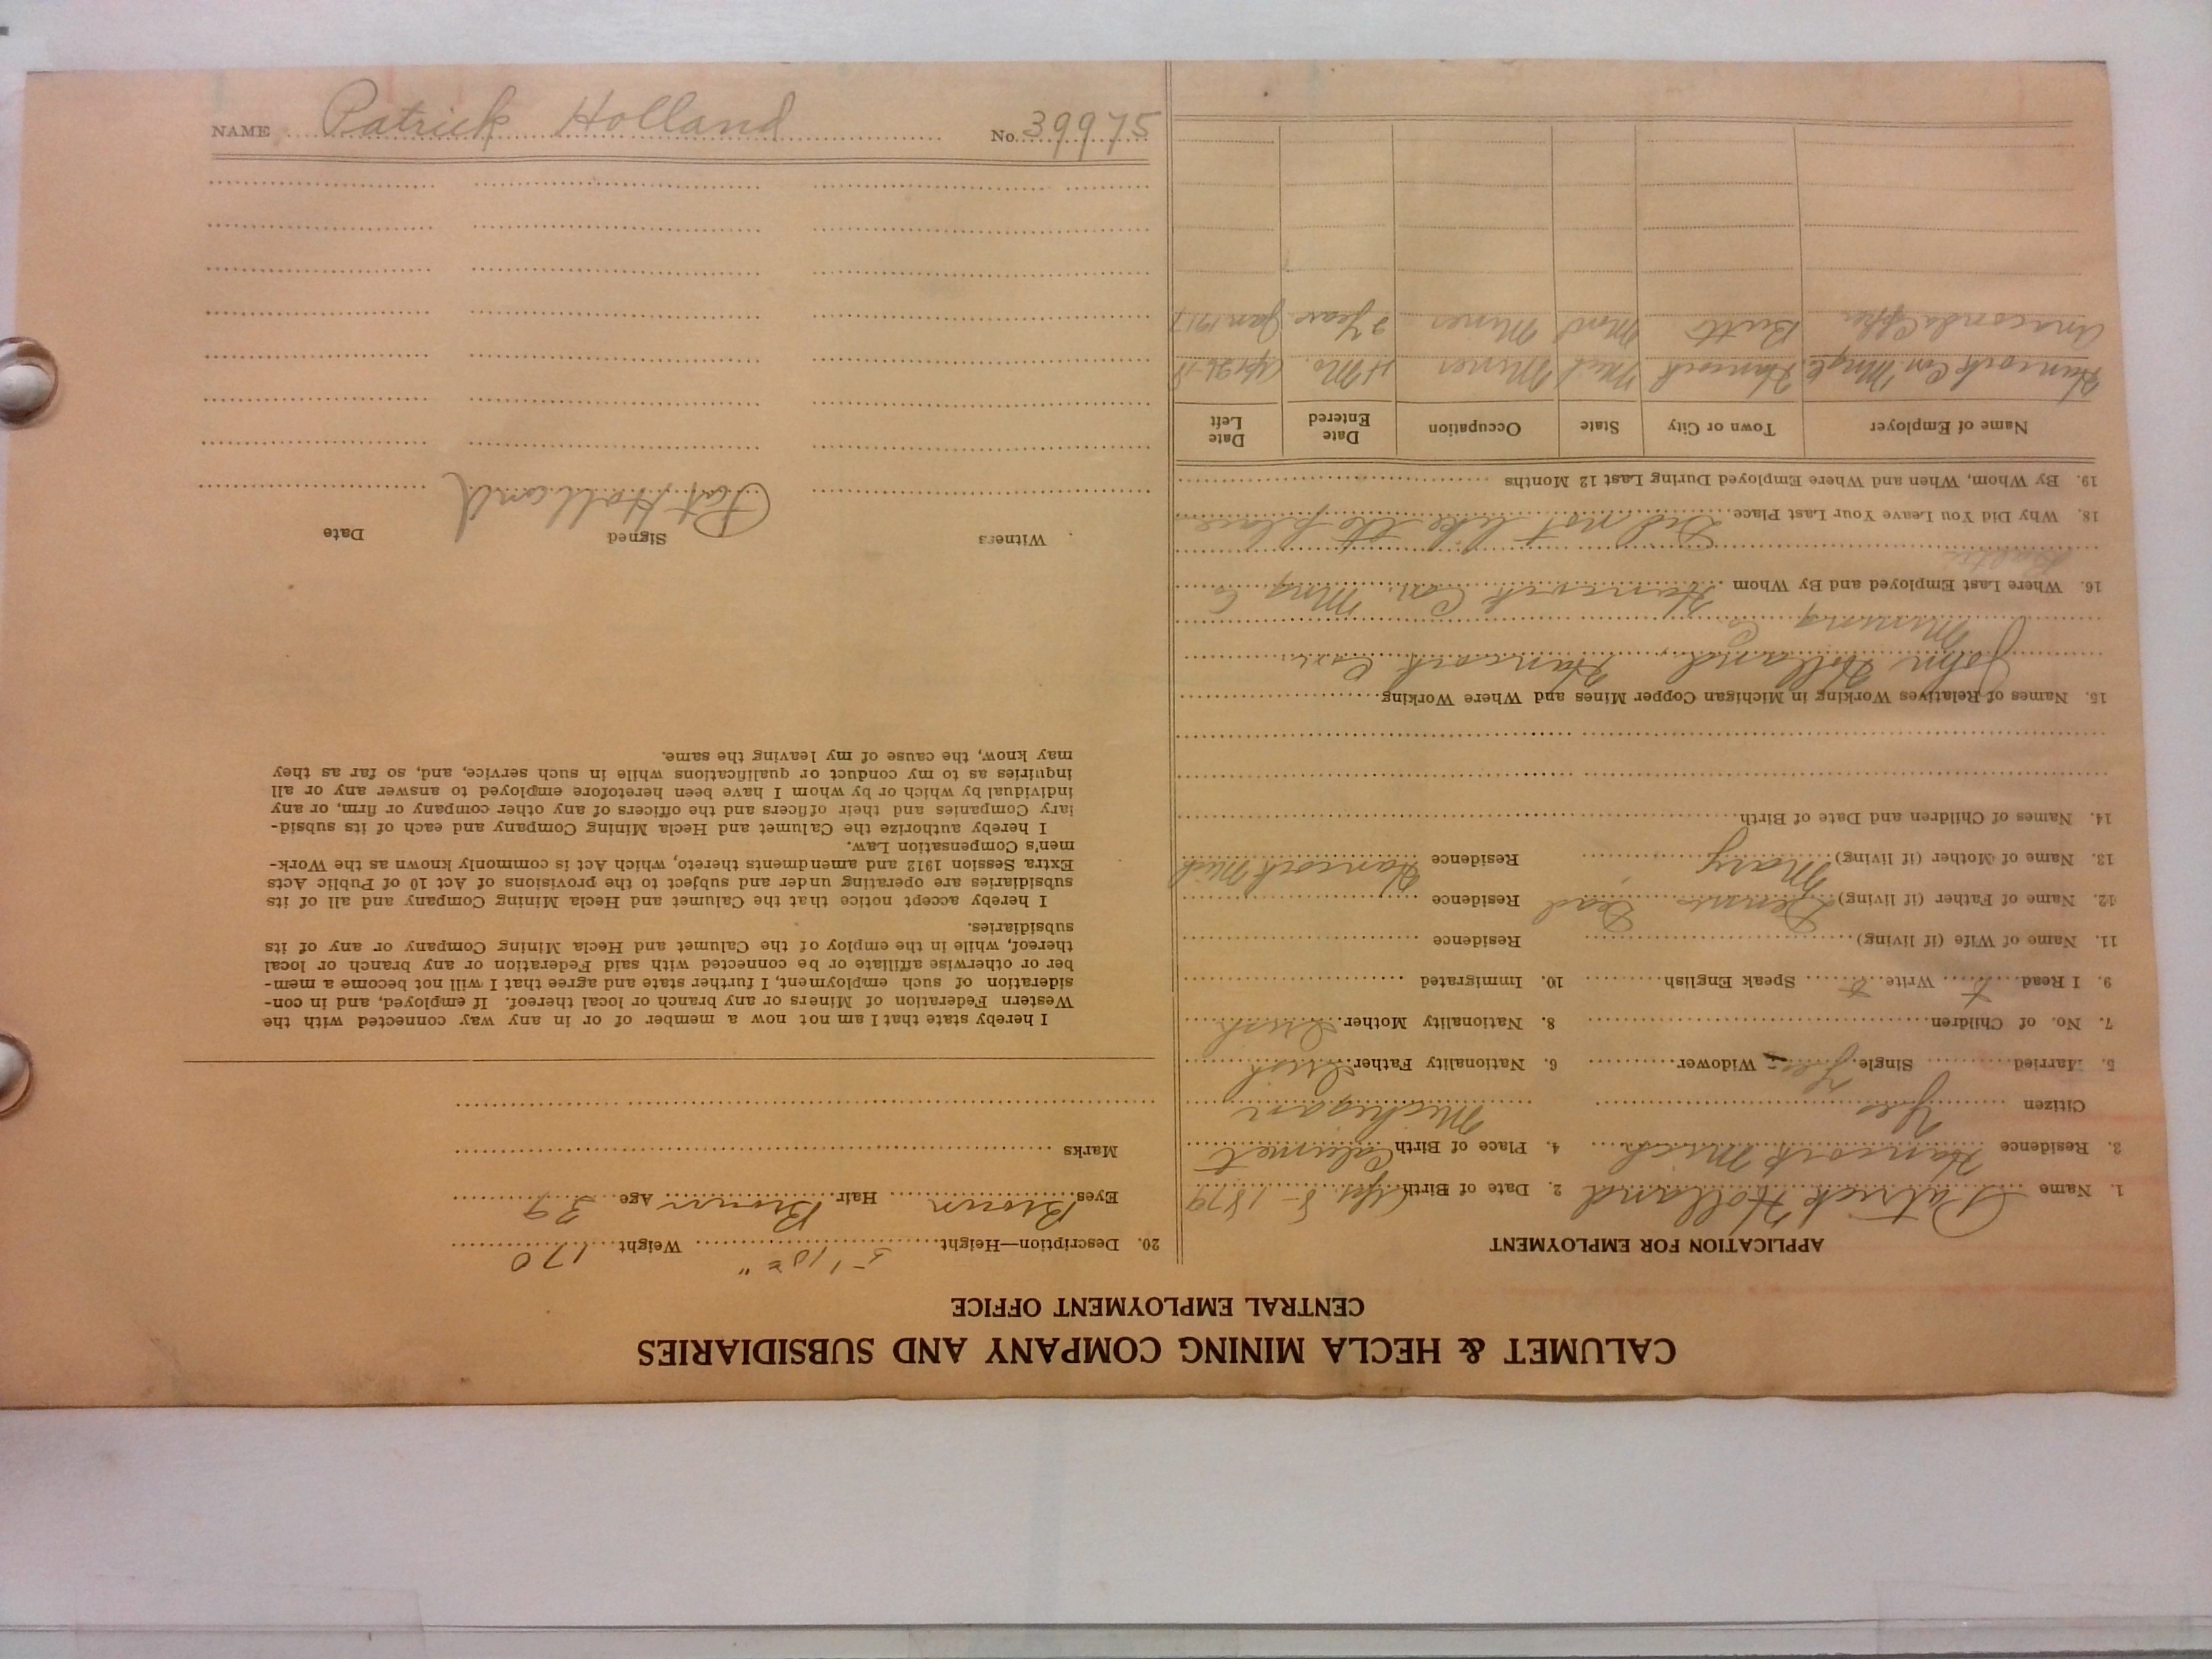 CALUMET & HECLA MINING COMPANY AND SUBSIDIARIES
CENTRAL EMPLOYMENT OFFICE
APPLICATION FOR EMPLOYMENT
1. Name Patrick Holland 2. Date of Birth Apr. 8 - 1879
3. Residence Hancock Mich 4. Place of Birth Calumet
Citizen Yes Michigan
5. Married Single Yes Widower 6. Nationality Father Irish
7. No. of Children 8. Nationality Mother Irish
9. I Read Write Speak English 10. Immigrated
11. Name of Wife (if living) Residence
12. Name of Father (if living) Dennis Dead Residence
13. Name of Mother (if living) Mary Residence Hancock Mich
14. Names of Children and Date of Birth
15. Names of Relatives Working in Michigan Copper Mines and Where Working
John Holland, Hancock Con.
Mining Co
16. Where Last Employed and By Whom Hancock Con. Mng Co
18. Why Did You Leave Your Last Place Did not like the place
19. By Whom, When and Where Employed During Last 12 Months
Name of Employer Town or City State Occupation Date Entered Date Left
Hancock Con Mng C. Hancock Mich Miner 4 Mo. Apr 26-18
Anaconda Copper Butte Mont Miner 2 Year Jan 1917
20. Description—Height 5' 10" Weight 170
Eyes Brown Hair Brown Age 39
Marks
I hereby state that I am not now a member of or in any way connected with the
Western Federation of Miners or any branch or local thereof. If employed, and in con-
sideration of such employment, I further state and agree that I will not become a mem-
ber or otherwise affiliate or be connected with said Federation or any branch or local
thereof, while in the employ of the Calumet and Hecla Mining Company or any of its
subsidiaries.
I hereby accept notice that the Calumet and Hecla Mining Company and all of its
subsidiaries are operating under and subject to the provisions of Act 10 of Public Acts
Extra Session 1912 and amendments thereto, which Act is commonly known as the Work-
men's Compensation Law.
I hereby authorize the Calumet and Hecla Mining Company and each of its subsid-
iary Companies and their officers and the officers of any other company or firm, or any
individual by which or by whom I have been heretofore employed to answer any or all
inquiries as to my conduct or qualifications while in such service, and, so far as they
may know, the cause of my leaving the same.
Witness Signed Date
Pat Holland
NAME Patrick Holland No. 39975